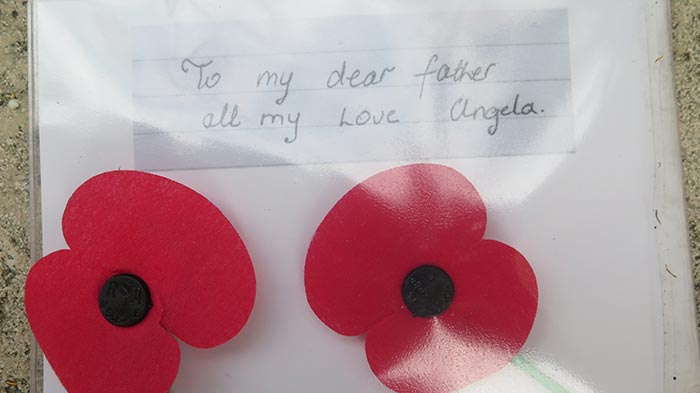 To my dear father
all my Love Angela.